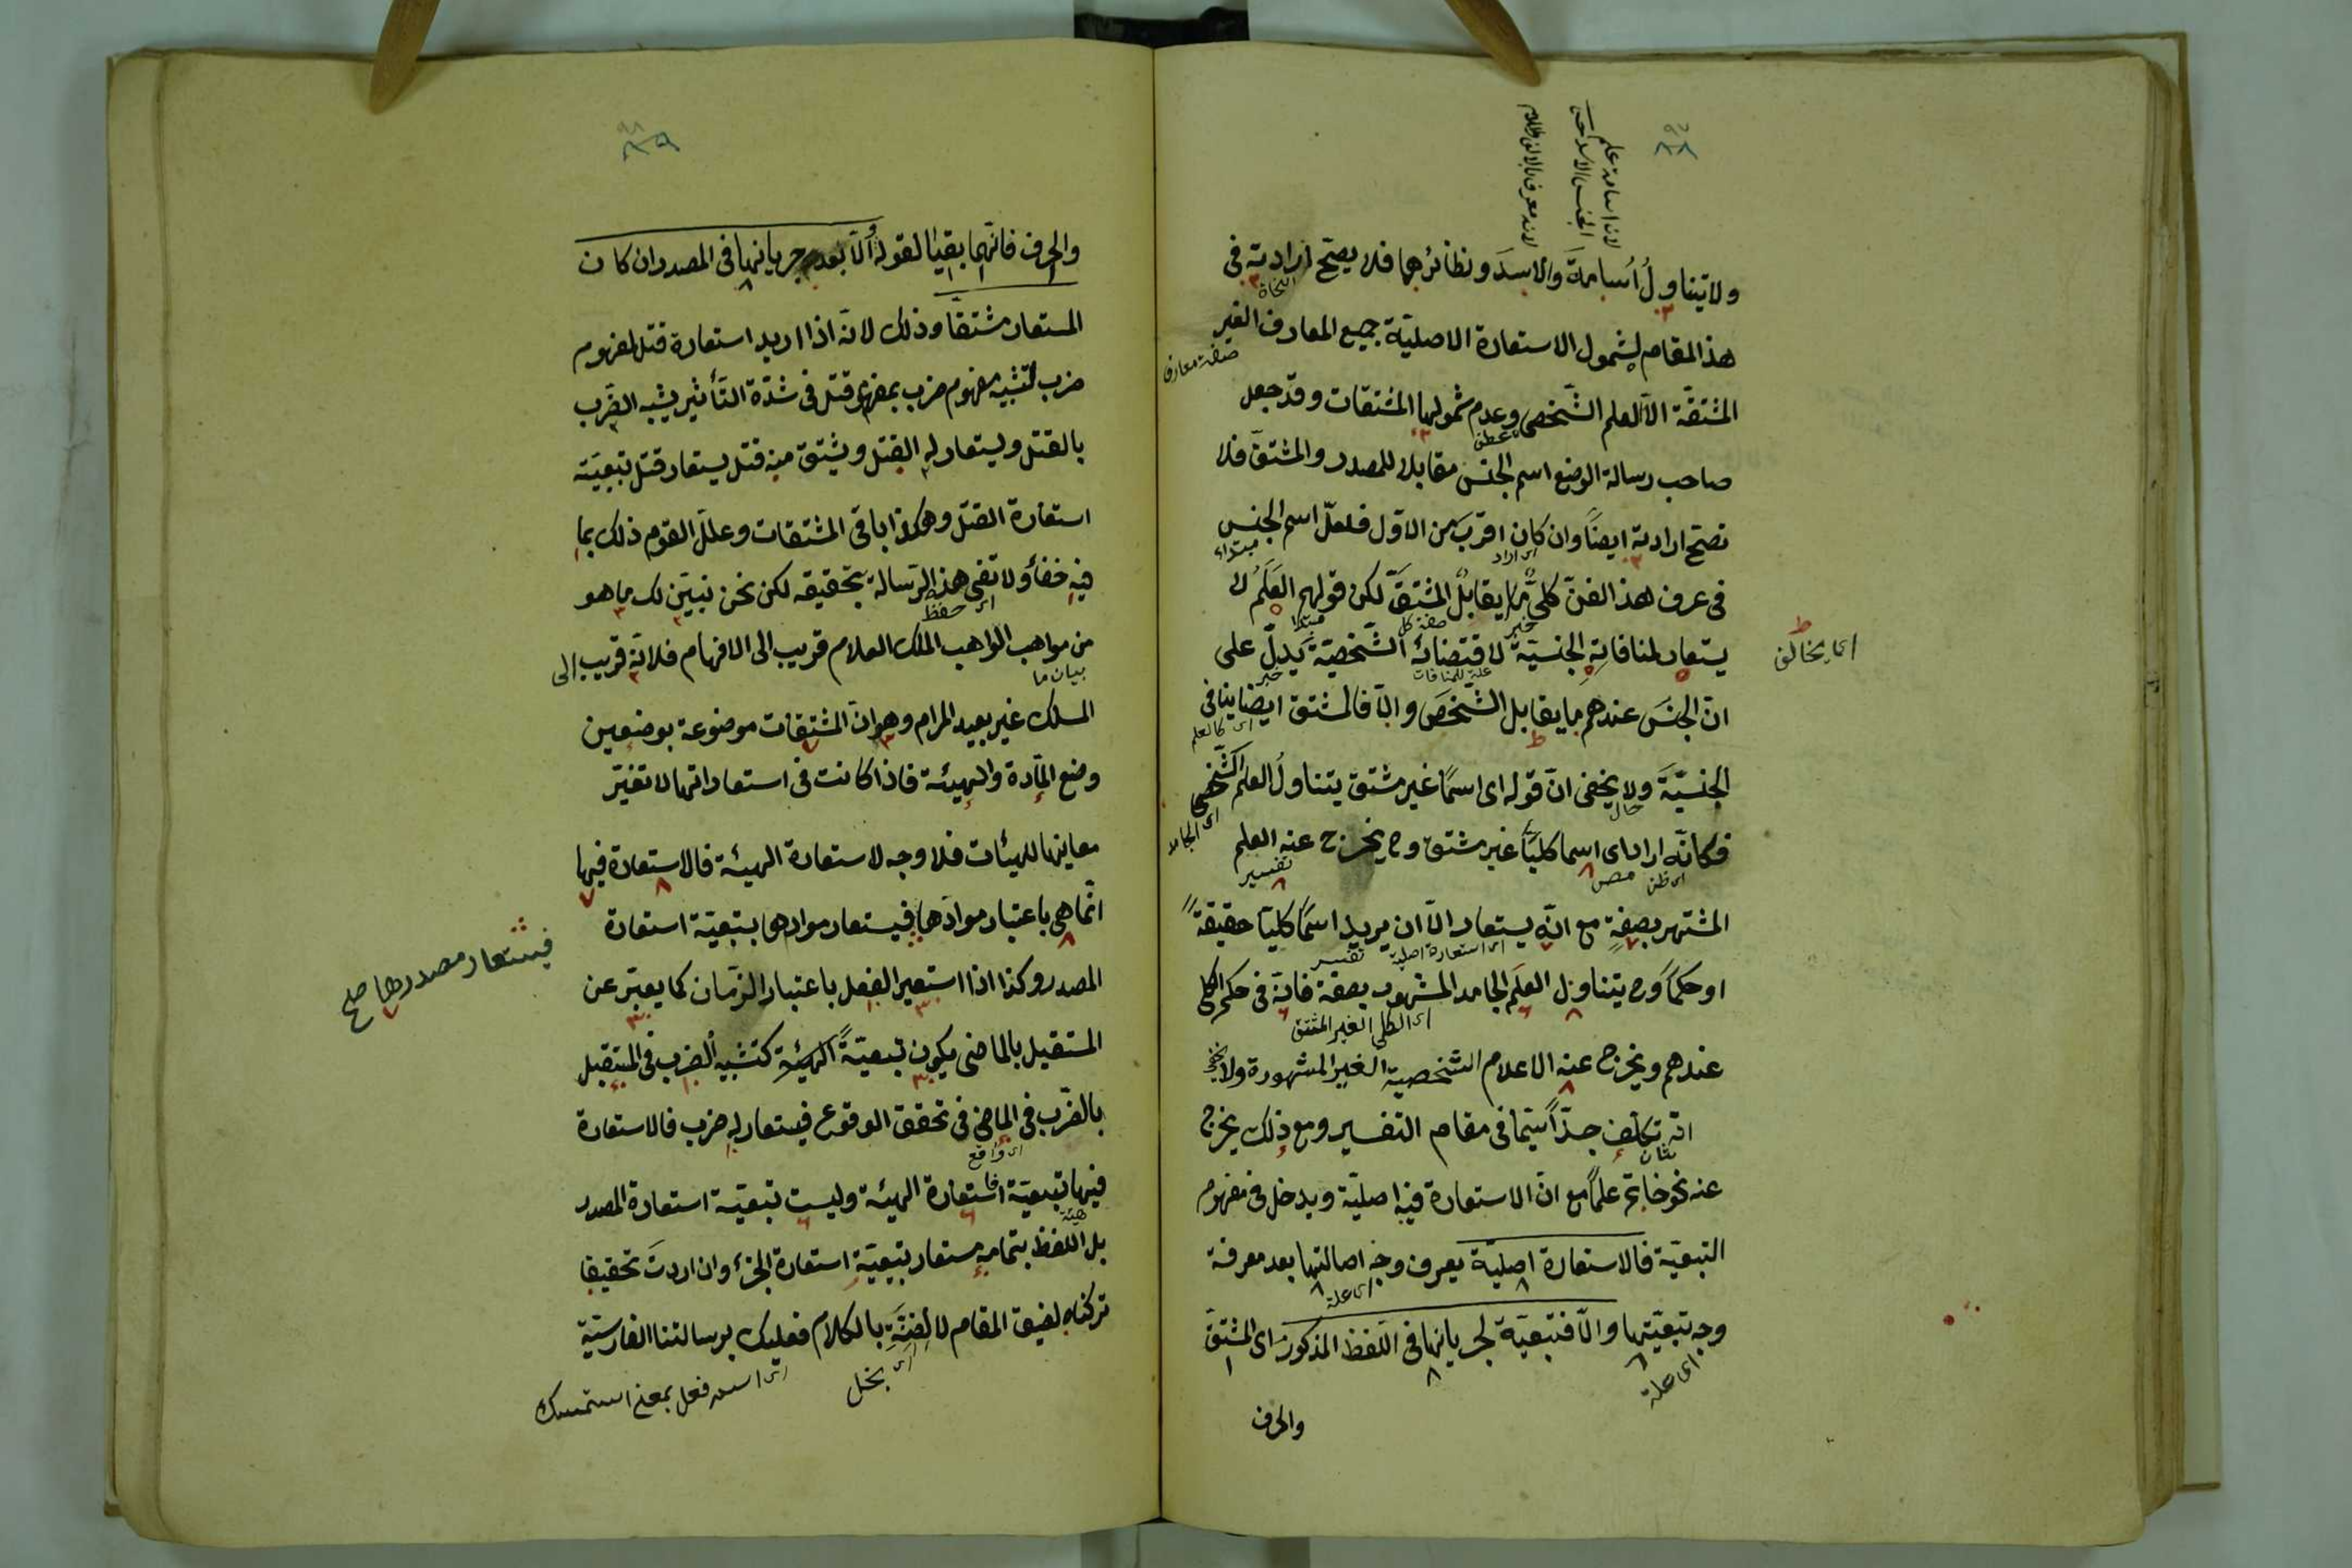 ولا يتناول أسامة والاسد ونظائرهما فلا يصح ارادته في
هذا المقام لشمول الاستعارة الاصلية جميع المعارف الغير
المشتقة الا العلم الشخصي وعدم شمولها المشتقات وقد جعل
صاحب رسالة الوضع اسم الجنس مقابلا للمصدر والمشتق فلا
تصح ارادته ايضا وان كان اقرب من الاول فلعل اسم الجنس
في عرف هذا الفن كلي ما يقابل المشتق لكن قولهم العلم لا
يستعار لمنافاته الجنسية لاقتضائه الشخصية يدل على
ان الجنس عندهم ما يقابل الشخص والا فالمشتق ايضا ينافي
اي يخالف
الجنسية ولا يخفى ان قوله اي اسما غير مشتق يتناول العلم الشخصي
فكانه اراد اي اسما كليا غير مشتق وح يخرج عنه العلم
المشتهر بصفة مع انه يستعار الا ان يريد اسما كليا حقيقة
او حكما وح يتناول العلم الجامد المشهور بصفة فانه في حكم الكلي
اي الكلي الغير المشتق
عندهم ويخرج عنه الاعلام الشخصية الغير المشهورة ولا يخفى
انه تكلف جدا سيما في مقام التفسير ومع ذلك يخرج
عنه نحو خاتم علما مع ان الاستعارة فيه اصلية ويدخل في مفهوم
التبعية فالاستعارة اصلية يعرف وجه اصالتها بعد معرفة
وجه تبعيتها والا فتبعية لجريانها في اللفظ المذكور اي المشتق
اي علة
والحرف
والحرف فانهما بقيا لقوله والا بعد جريانها في المصدر ان كان
المستعار مشتقا وذلك لانه اذا اريد استعارة قتل لمفهوم
ضرب لتشبيه مفهوم ضرب بمفهوم قتل في شدة التأثير يشبه الضرب
بالقتل ويستعار له القتل ويشتق منه قتل يستعار قتل تبعية
استعارة القتل وهكذا باقي المشتقات وعلل القوم ذلك بما
فيه خفاء ولا تفي هذه الرسالة بتحقيقه لكن نحن نبين لك ما هو
من مواهب الواهب الملك العلام قريب الى الافهام فلانه قريب الى
بيان ما
المسلك غير بعيد المرام وهو ان المشتقات موضوعة بوضعين
وضع المادة والهيئة فاذا كانت في استعاراتها لا تغير
معانيها للهيئات فلا وجه لاستعارة الهيئة فالاستعارة فيها
انما هي باعتبار موادها فيستعار موادها بتبعية استعارة
فيستعار مصدرها صح
المصدر وكذا اذا استعير الفعل باعتبار الزمان كما يعبر عن
المستقبل بالماضي يكون تبعية الهيئة كتشبيه الضرب في المستقبل
بالضرب في الماضي في تحقق الوقوع فيستعار له ضرب فالاستعارة
فيها تبعية استعارة الهيئة وليست تبعية استعارة المصدر
بل اللفظ بتمامه مستعار بتبعية استعارة الجزء وان اردت تحقيقا
تركناه لضيق المقام لا لضنة بالكلام فعليك برسالتنا الفارسية
اي بخل
اي اسم فعل بمعنى استمسك